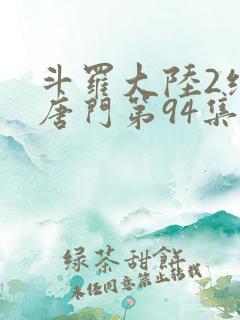 斗羅大陸2絕
唐門第94集
綠茶甜餅
未任同意禁止轉載